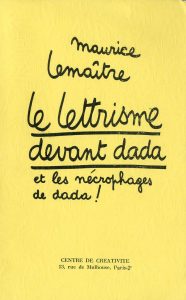 maurice
lemaître
le lettrisme
devant dada
et les nécrophages
de dada !
CENTRE DE CREATIVITE
13, rue de Mulhouse, Paris-2e